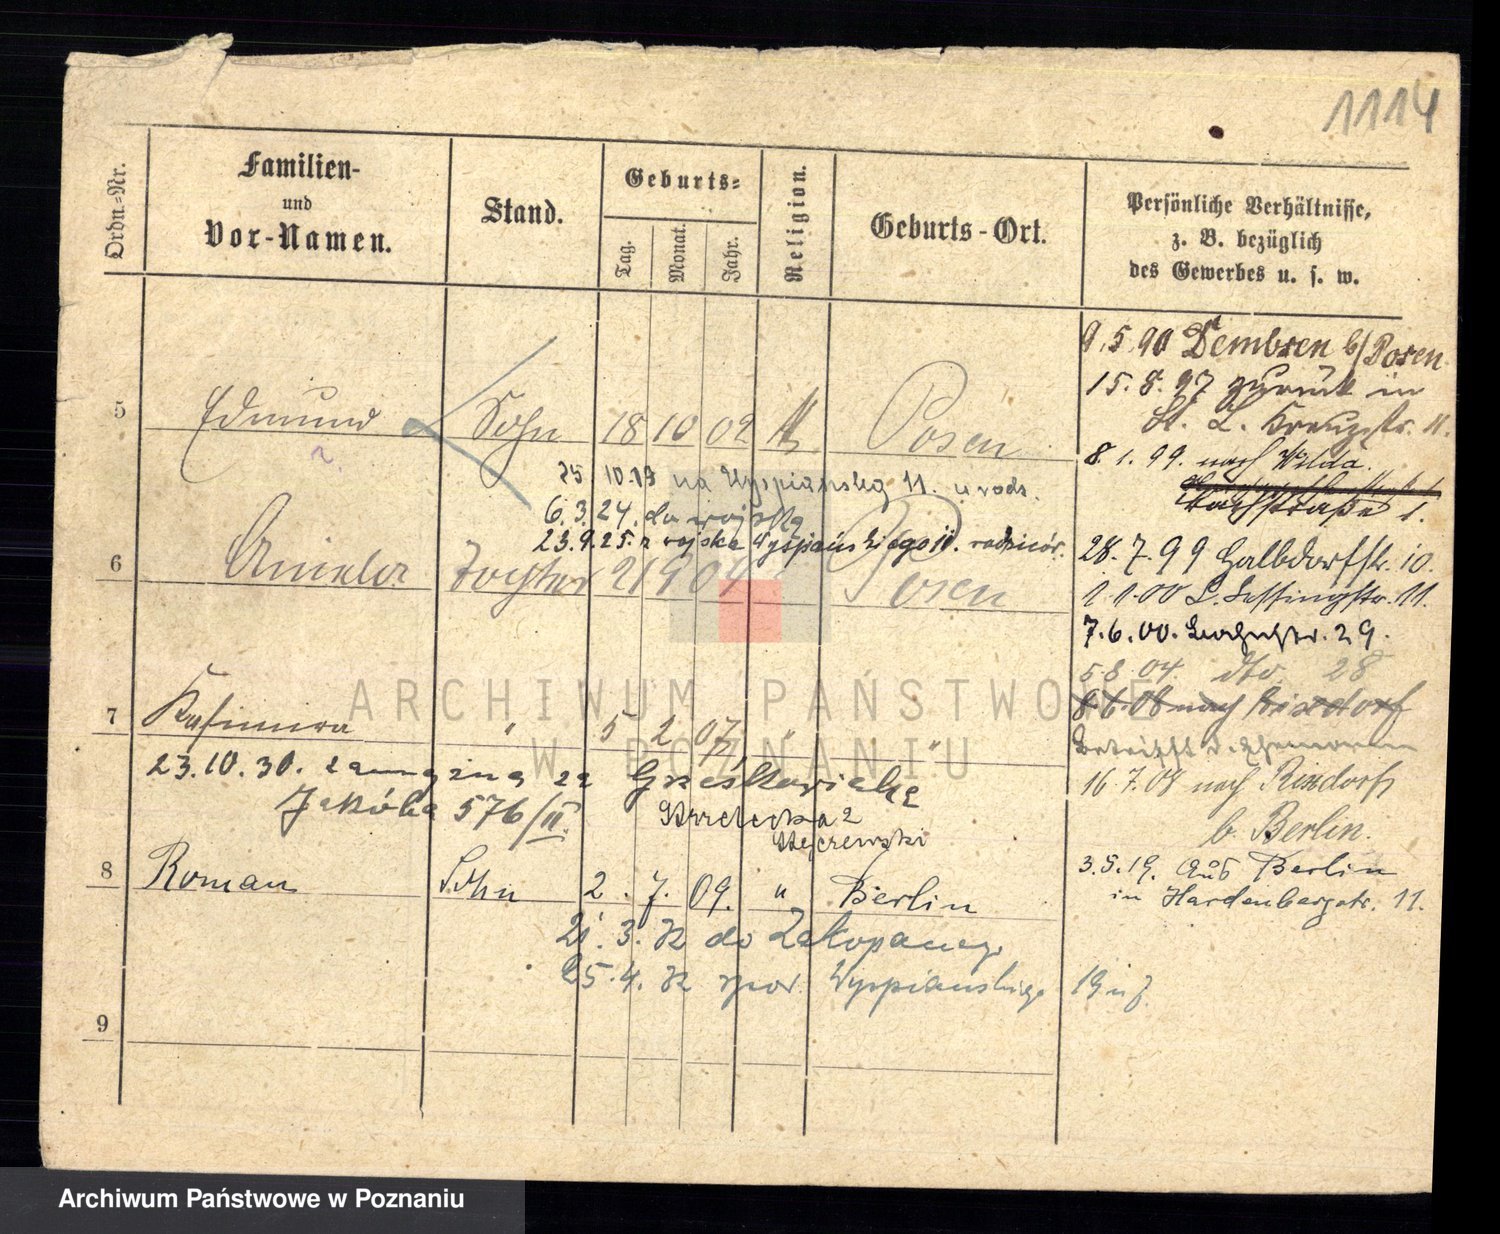 1114
Ordn.-Nr.
Familien-
und
Vor-Namen.
Stand.
Geburts-
Tag.
Monat.
Jahr.
Religion.
Geburts-Ort.
Persönliche Verhältnisse,
z. B. bezüglich
des Gewerbes u. s. w.
9.5.90 Dembsen b/Posen
15.8.97 zurück in
St. L. Kreuzstr. 11.
8.1.99. nach Wilda.
Bachstraße 1.
28.7.99 Halbdorfstr. 10.
1.1.00 L. Lessingstr. 11.
7.6.00. 29.
5.8.04. dto. 28
8.6.08 nach Rixdorf
16.7.08 nach Rixdorf
b. Berlin.
3.5.19. aus Berlin
in Hardenbergstr. 11.
5 Edmund Sohn 18 10 02 Posen
25.10.19 na Wyspiańska 11. u rodz.
6.3.24. do wojska
23.9.25. z wojska Wyspiańskiego 10. rodziców.
6 Aniela Tochter 21 9 04 Posen
7 Kasimira " 5 2 07 " "
23.10.30. zamężna za Grześkowiaka
Jakóba 576/II.
Strzelecka 2
8 Roman Sohn 2. 7. 09. " Berlin
21.3.32 do Zakopanego
25.4.32 spow. Wyspiańskiego 19
9
ARCHIWUM PAŃSTWOWE
W POZNANIU
Archiwum Państwowe w Poznaniu